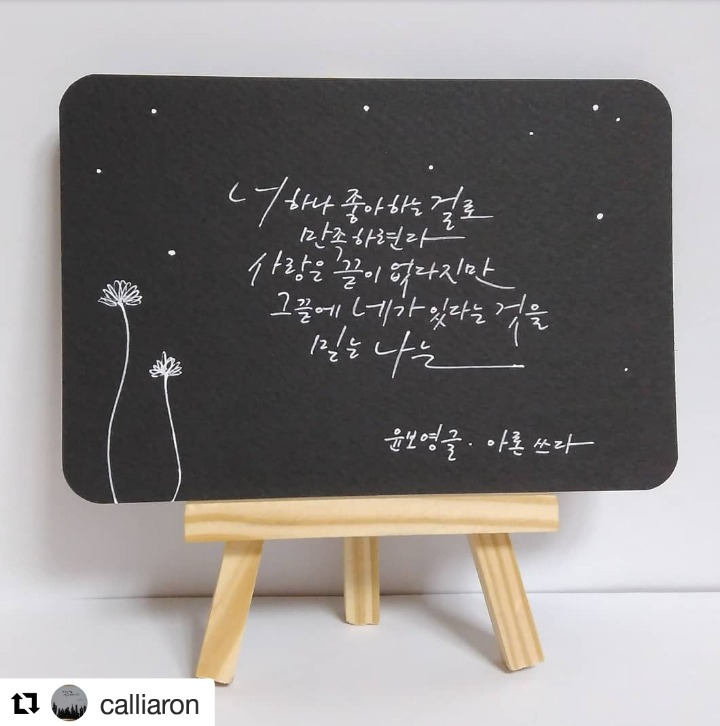 너 하나 좋아하는 걸로
만족하련다
사랑은 끝이 없다지만
그 끝에 네가 있다는 것을
믿는 나는
윤보영글. 아론 쓰다
calliaron